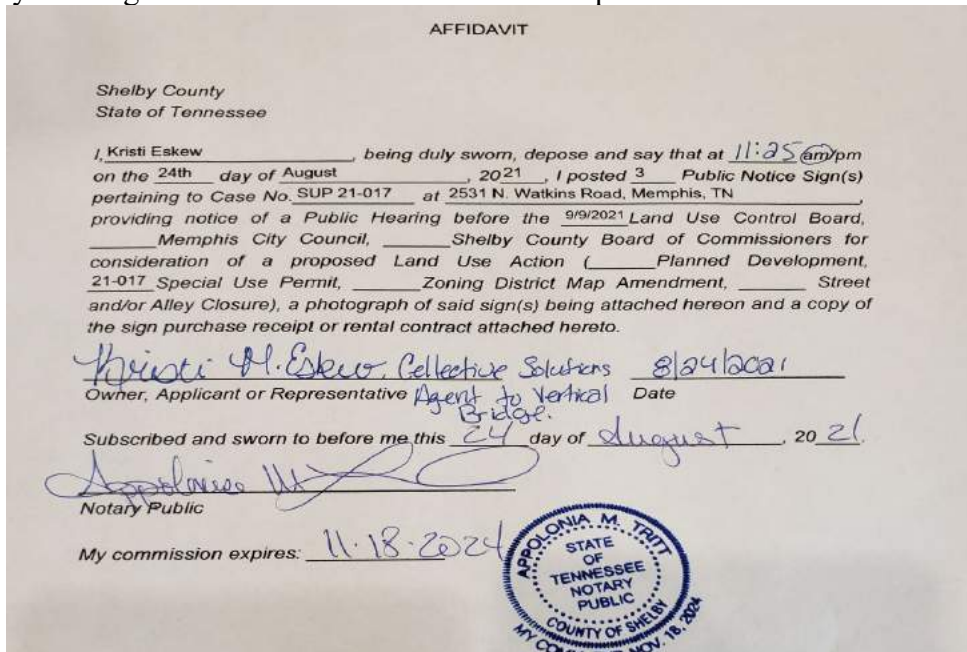 AFFIDAVIT
Shelby County
State of Tennessee
I, Kristi Eskew, being duly sworn, depose and say that at 11:25 am/pm
on the 24th day of August, 2021, I posted 3 Public Notice Sign(s)
pertaining to Case No. SUP 21-017 at 2531 N. Watkins Road, Memphis, TN,
providing notice of a Public Hearing before the 9/9/2021 Land Use Control Board,
______Memphis City Council, ______Shelby County Board of Commissioners for
consideration of a proposed Land Use Action (______Planned Development,
21-017 Special Use Permit, ______Zoning District Map Amendment, ______ Street
and/or Alley Closure), a photograph of said sign(s) being attached hereon and a copy of
the sign purchase receipt or rental contract attached hereto.
Kristi M. Eskew. Collective Solutions 8/24/2021
Owner, Applicant or Representative Agent to Vertical Date
Bridge.
Subscribed and sworn to before me this 24 day of August, 2021.
Notary Public
My commission expires: 11-18-2024
APPOLONIA M. TRITT
STATE
OF
TENNESSEE
NOTARY
PUBLIC
COUNTY OF SHELBY
NOV. 18, 2024